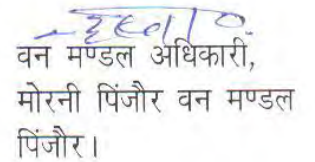 वन मण्डल अधिकारी,
मोरनी पिंजौर वन मण्डल
पिंजौर।